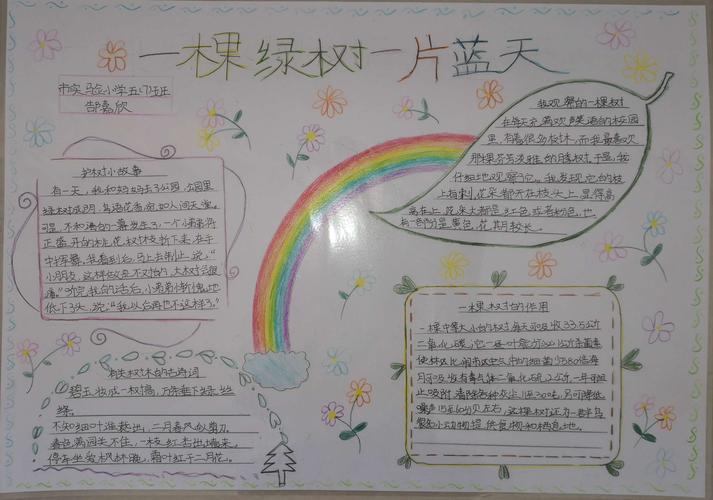 一棵绿树一片蓝天
市实验小学五(7)班
郜嘉欣
护树小故事
有一天，我和妈妈去了公园，公园里
绿树成阴，鸟语花香，宛如人间天堂。
可是，不和谐的一幕发生了，一个小弟弟将
正盛开的桃花树枝折下来，在手
中挥舞，我看到后，马上去制止，说：“
小朋友，这样做是不对的，大树会很
痛。”听完我的话后，小弟弟惭愧地
低下了头，说：“我以后再也不这样了。”
有关树木的古诗词
碧玉妆成一树高，万条垂下绿丝
绦。
不知细叶谁裁出，二月春风似剪刀。
春色满园关不住，一枝红杏出墙来。
停车坐爱枫林晚，霜叶红于二月花。
我观察的一棵树
在每天充满欢声笑语的校园
里，有着很多树木，而我最喜欢
那棵芬芳淡雅的树，于是，我
仔细地观察了它。我发现它的枝
上有刺，花朵都开在枝头上，显得高
高在上，花朵大都是红色或者粉色，也
有一部分是黄色，花期较长。
一棵树的作用
一棵中等大小的树，每天可吸收33.5公斤
二氧化碳，它
使林区比闹市区空气中的细菌少580倍，每
月可吸收有毒气体二氧化硫2公斤，一年可阻
止吸附、清除各种灰尘
噪声15至60分贝左右，这棵树可
小动物提供食物和栖息地。